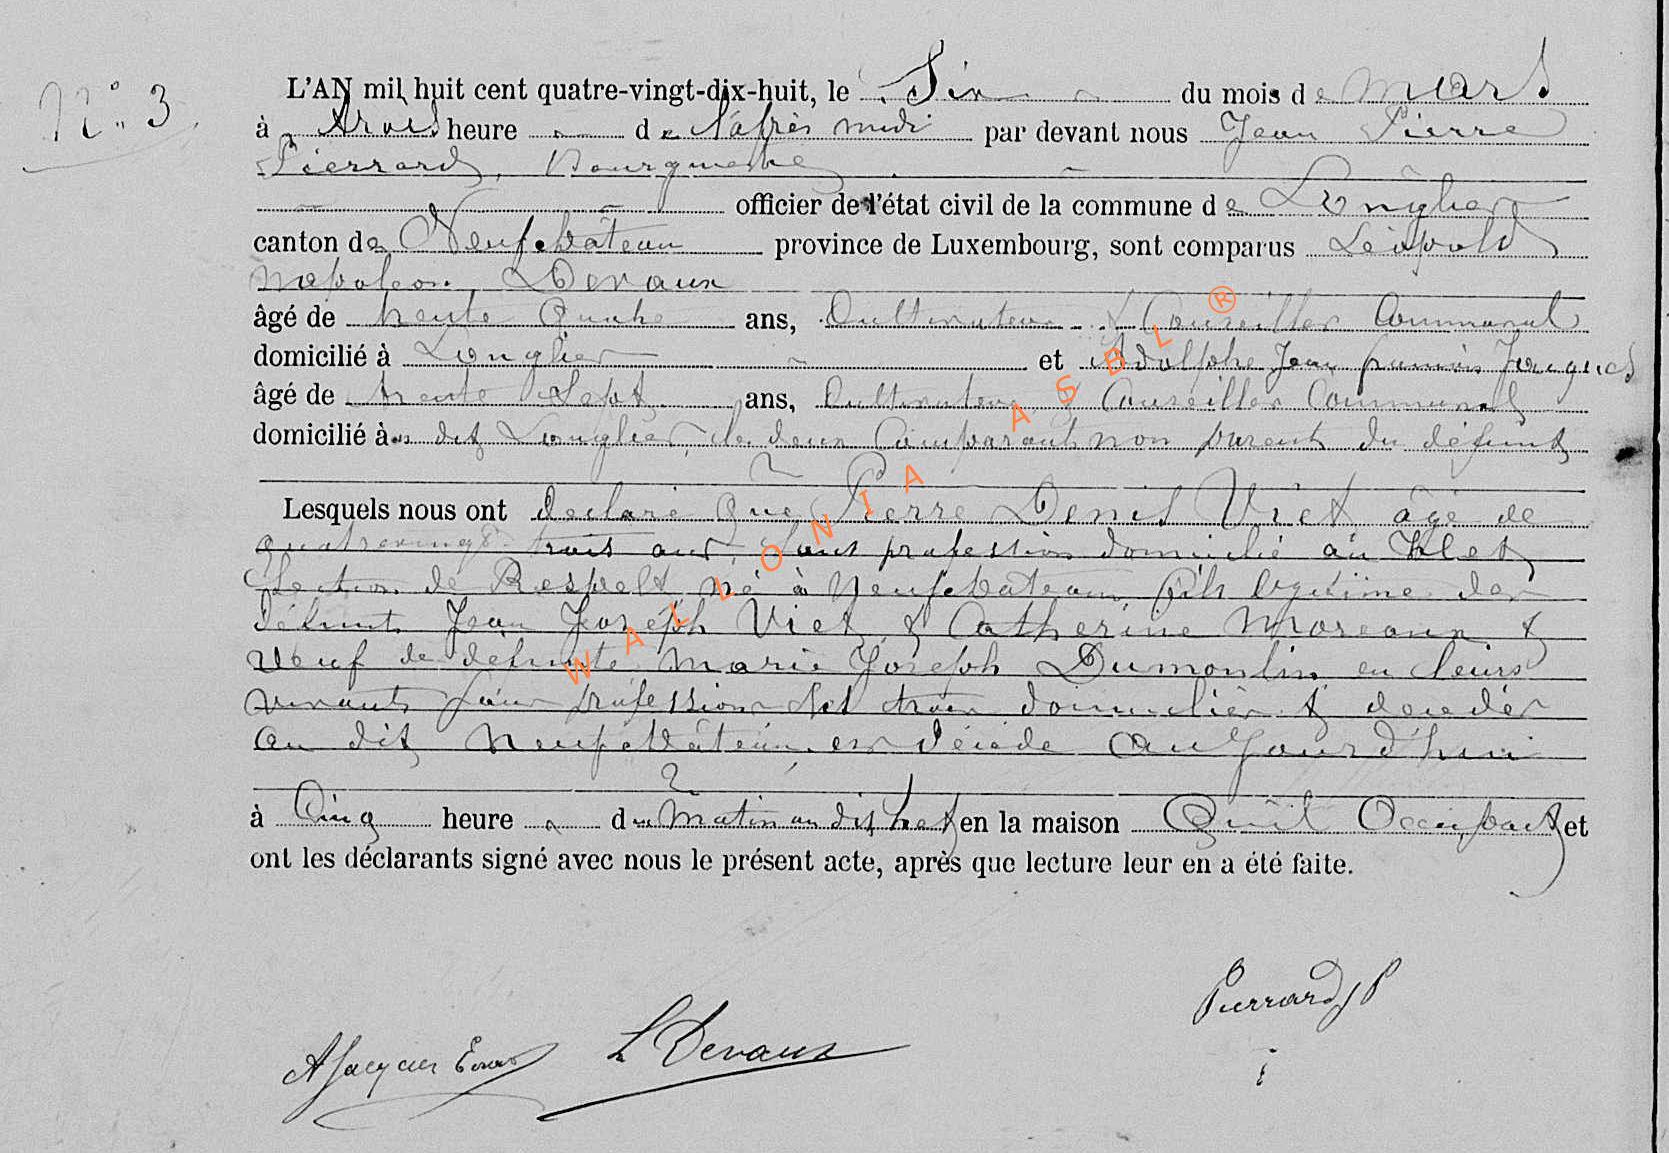 N° 3
L'AN mil huit cent quatre-vingt-dix-huit, le Six du mois de mars
à trois heure de l'après midi par devant nous Jean Pierre
Pierrard, Bourgmestre
officier de l'état civil de la commune de Longlier
canton de Neufchâteau province de Luxembourg, sont comparus Léopold
Napoléon Devaux
âgé de trente quatre ans, Cultivateur & Conseiller Communal
domicilié à Longlier et Adolphe Jean francois Jacques
âgé de trente Sept ans, Cultivateur & Conseiller Communal
domicilié à dit Longlier, les deux Comparants non parents du défunt
Lesquels nous ont declaré que Pierre Denis Viet, âgé de
quatrevingt trois ans, sans profession domicilié au
Section de Respelt, né à Neufchateau, fils légitime des
défunts Jean Joseph Viet & Catherine Moreaux &
veuf de defunte Marie Joseph Dumoulin en leurs
vivants sans profession tous trois domiciliés & decedés
au dit Neufchâteau, est décédé aujourd'hui
à Cinq heure du Matin au dit en la maison Qu'il Occupait et
ont les déclarants signé avec nous le présent acte, après que lecture leur en a été faite.
Pierrard JP
A Jacques L Devaux
WALLONIA ASBL ®